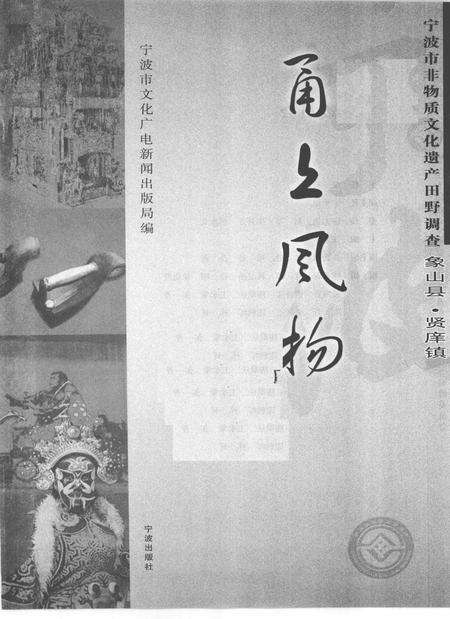 宁波市非物质文化遗产田野调查 象山县·贤庠镇
甬上风物
宁波市文化广电新闻出版局编
宁波出版社